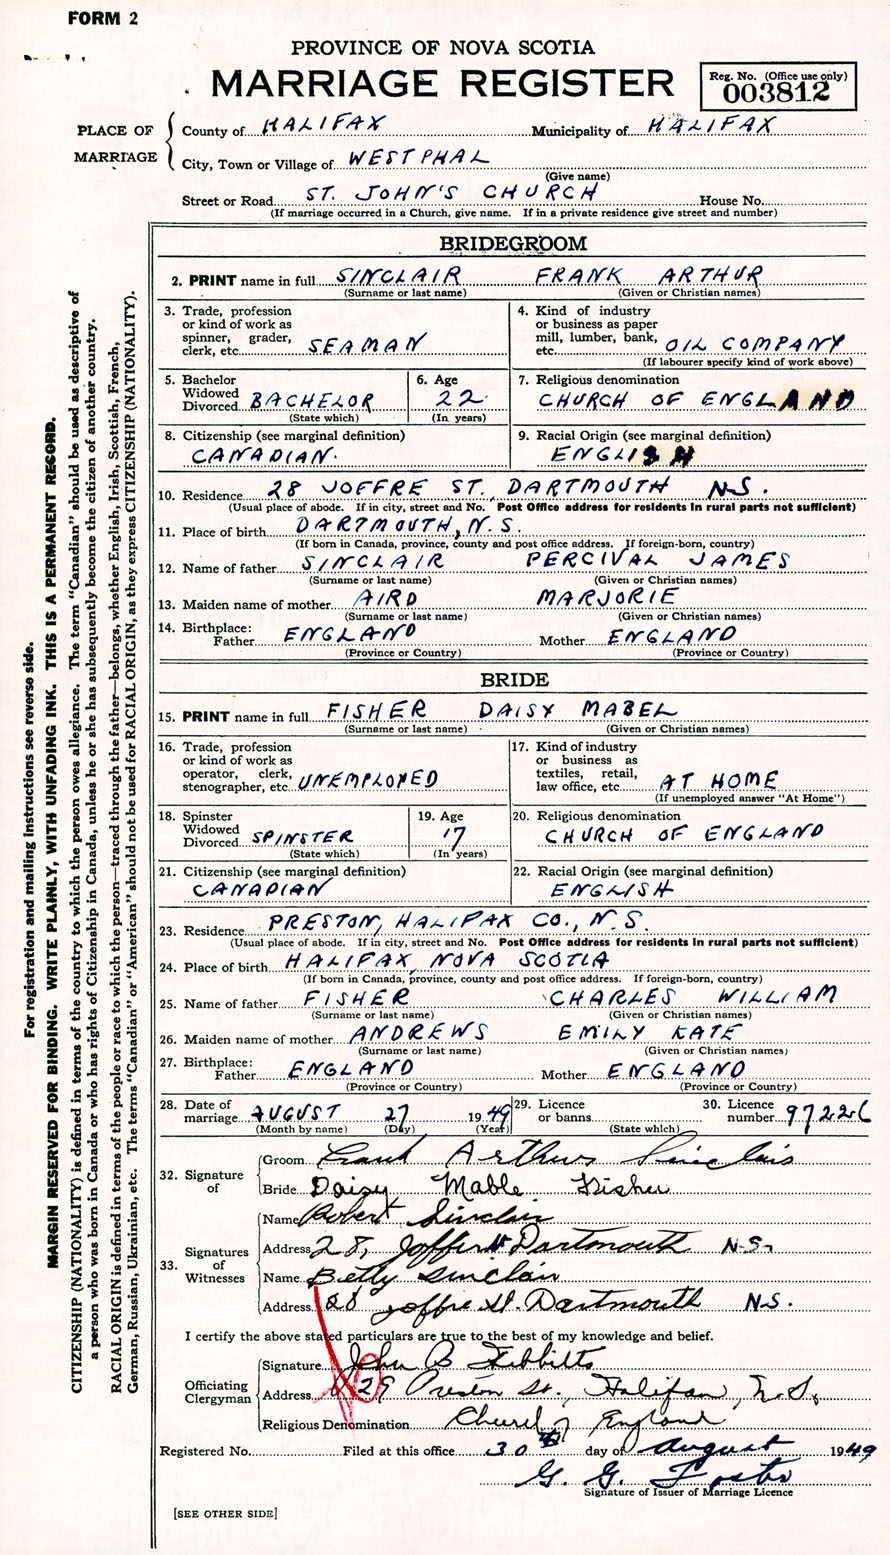 FORM 2
PROVINCE OF NOVA SCOTIA
MARRIAGE REGISTER
Reg. No. (Office use only)
003812
PLACE OF MARRIAGE
County of HALIFAX Municipality of HALIFAX
City, Town or Village of WESTPHAL
(Give name)
Street or Road ST. JOHN'S CHURCH House No.
(If marriage occurred in a Church, give name. If in a private residence give street and number)
BRIDEGROOM
2. PRINT name in full SINCLAIR FRANK ARTHUR
(Surname or last name) (Given or Christian names)
3. Trade, profession or kind of work as spinner, grader, clerk, etc. SEAMAN
4. Kind of industry or business as paper mill, lumber, bank, etc. OIL COMPANY
(If labourer specify kind of work above)
5. Bachelor Widowed Divorced BACHELOR
(State which)
6. Age 22
(In years)
7. Religious denomination
CHURCH OF ENGLAND
8. Citizenship (see marginal definition)
CANADIAN.
9. Racial Origin (see marginal definition)
ENGLISH
10. Residence 28 JOFFRE ST., DARTMOUTH N.S.
(Usual place of abode. If in city, street and No. Post Office address for residents in rural parts not sufficient)
11. Place of birth DARTMOUTH, N.S.
(If born in Canada, province, county and post office address. If foreign-born, country)
12. Name of father SINCLAIR PERCIVAL JAMES
(Surname or last name) (Given or Christian names)
13. Maiden name of mother AIRD MARJORIE
(Surname or last name) (Given or Christian names)
14. Birthplace:
Father ENGLAND Mother ENGLAND
(Province or Country) (Province or Country)
BRIDE
15. PRINT name in full FISHER DAISY MABEL
(Surname or last name) (Given or Christian names)
16. Trade, profession or kind of work as operator, clerk, stenographer, etc. UNEMPLOYED
17. Kind of industry or business as textiles, retail, law office, etc. AT HOME
(If unemployed answer "At Home")
18. Spinster Widowed Divorced SPINSTER
(State which)
19. Age 17
(In years)
20. Religious denomination
CHURCH OF ENGLAND
21. Citizenship (see marginal definition)
CANADIAN
22. Racial Origin (see marginal definition)
ENGLISH
23. Residence PRESTON, HALIFAX CO., N.S.
(Usual place of abode. If in city, street and No. Post Office address for residents in rural parts not sufficient)
24. Place of birth HALIFAX, NOVA SCOTIA
(If born in Canada, province, county and post office address. If foreign-born, country)
25. Name of father FISHER CHARLES WILLIAM
(Surname or last name) (Given or Christian names)
26. Maiden name of mother ANDREWS EMILY KATE
(Surname or last name) (Given or Christian names)
27. Birthplace:
Father ENGLAND Mother ENGLAND
(Province or Country) (Province or Country)
28. Date of marriage AUGUST 27 1949
(Month by name) (Day) (Year)
29. Licence or banns
(State which)
30. Licence number 97226
32. Signature of
Groom Frank Arthur Sinclair
Bride Daisy Mable Fisher
33. Signatures of Witnesses
Name Robert Sinclair
Address 28, Joffre St Dartmouth N.S.
Name Betty Sinclair
Address 28 Joffre St. Dartmouth N.S.
I certify the above stated particulars are true to the best of my knowledge and belief.
Officiating Clergyman
Signature John B Tibbitts
Address 29 Preston St., Halifax, N.S.
Religious Denomination Church of England
Registered No. Filed at this office 30th day of August 1949
G. G. Foster
Signature of Issuer of Marriage Licence
[SEE OTHER SIDE]
For registration and mailing instructions see reverse side.
MARGIN RESERVED FOR BINDING. WRITE PLAINLY, WITH UNFADING INK. THIS IS A PERMANENT RECORD.
CITIZENSHIP (NATIONALITY) is defined in terms of the country to which the person owes allegiance. The term "Canadian" should be used as descriptive of
a person who was born in Canada or who has rights of Citizenship in Canada, unless he or she has subsequently become the citizen of another country.
RACIAL ORIGIN is defined in terms of the people or race to which the person—traced through the father—belongs, whether English, Irish, Scottish, French,
German, Russian, Ukrainian, etc. The terms "Canadian" or "American" should not be used for RACIAL ORIGIN, as they express CITIZENSHIP (NATIONALITY).